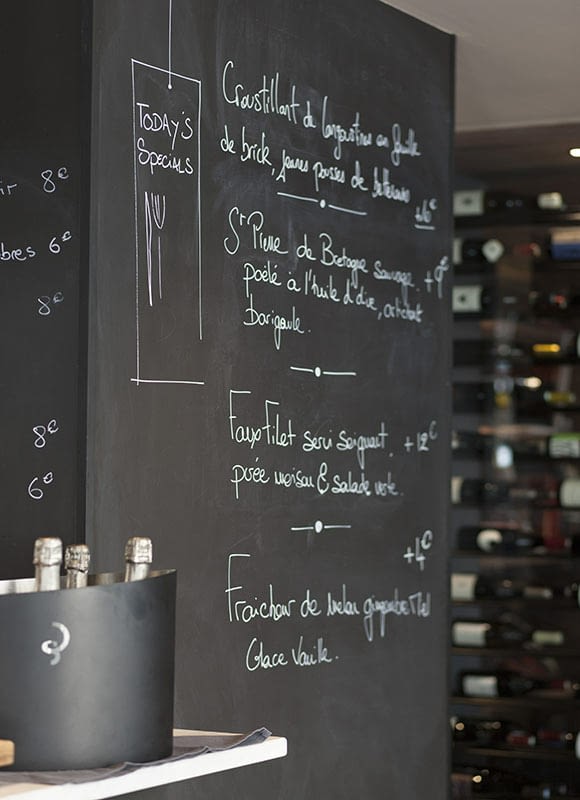 ir 8€
bres 6€
8€
8€
6€
TODAY'S
SPECIALS
Croustillant de langoustines en feuille
de brick, jeunes pousses de betteraves
+6€
St Pierre de Bretagne Sauvage. +9€
poêlé à l'huile d'olive, artichaut
barigoule.
Faux Filet servi saignant +12€
purée maison & salade verte.
+4€
Fraicheur de melon gingembre Miel
Glace Vanille.